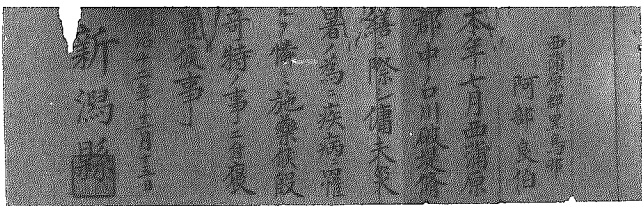 西蒲原郡黒鳥邨
阿部良伯
本年七月西蒲原
郡中ノ口川堤
繕之際傭夫炎
暑ノ為メ疾病罹
候施薬致候段
奇特ノ事ニ付褒
候事
年十二月十五日
新潟縣